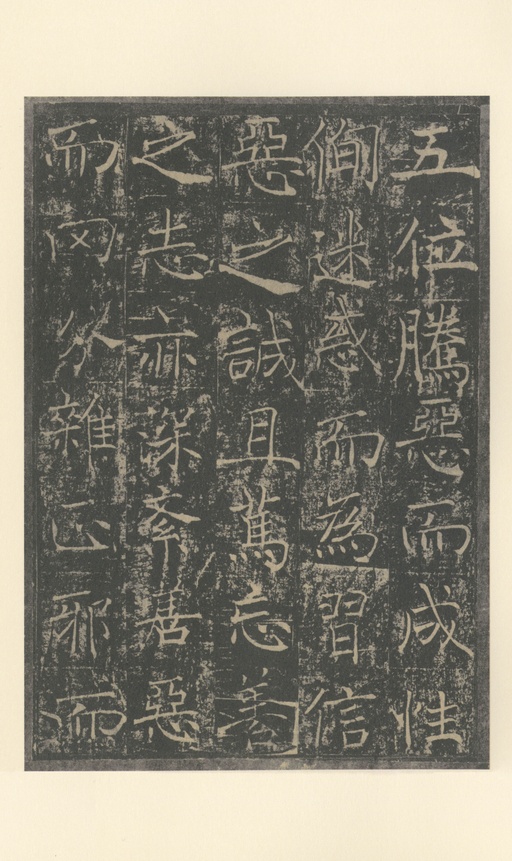 五位騰惡而成性
侚迷惑而為習信
惡之誠且篤忘善
之志亦深紊善惡
而罔分雜正邪而